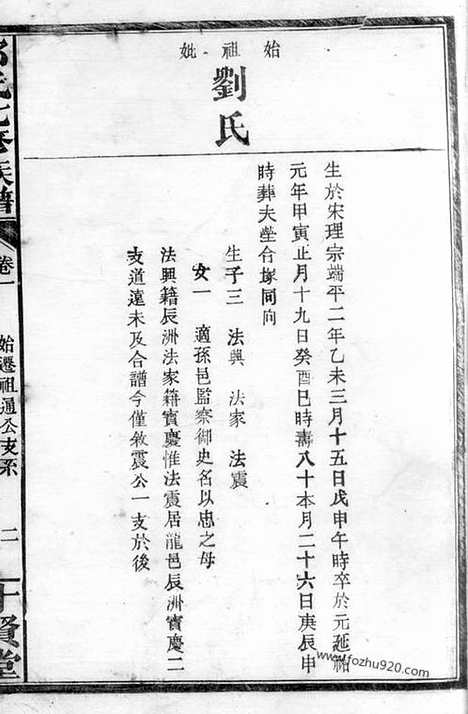 始祖妣
劉氏
生於宋理宗端平二年乙未三月十五日戊申午時卒於元延祐
元年甲寅正月十九日癸酉巳時壽八十本月二十六日庚辰申
時葬夫塋合塚同向
生子三 法興 法家 法震
女一 適孫邑監察御史名以忠之母
法興籍辰洲法家籍寳慶惟法震居龍邑辰洲寳慶二
支道遠未及合譜今僅敘震公一支於後
氏七修族譜
卷一
始遷祖通公支系
二
十賢堂
www.fozhu920.com